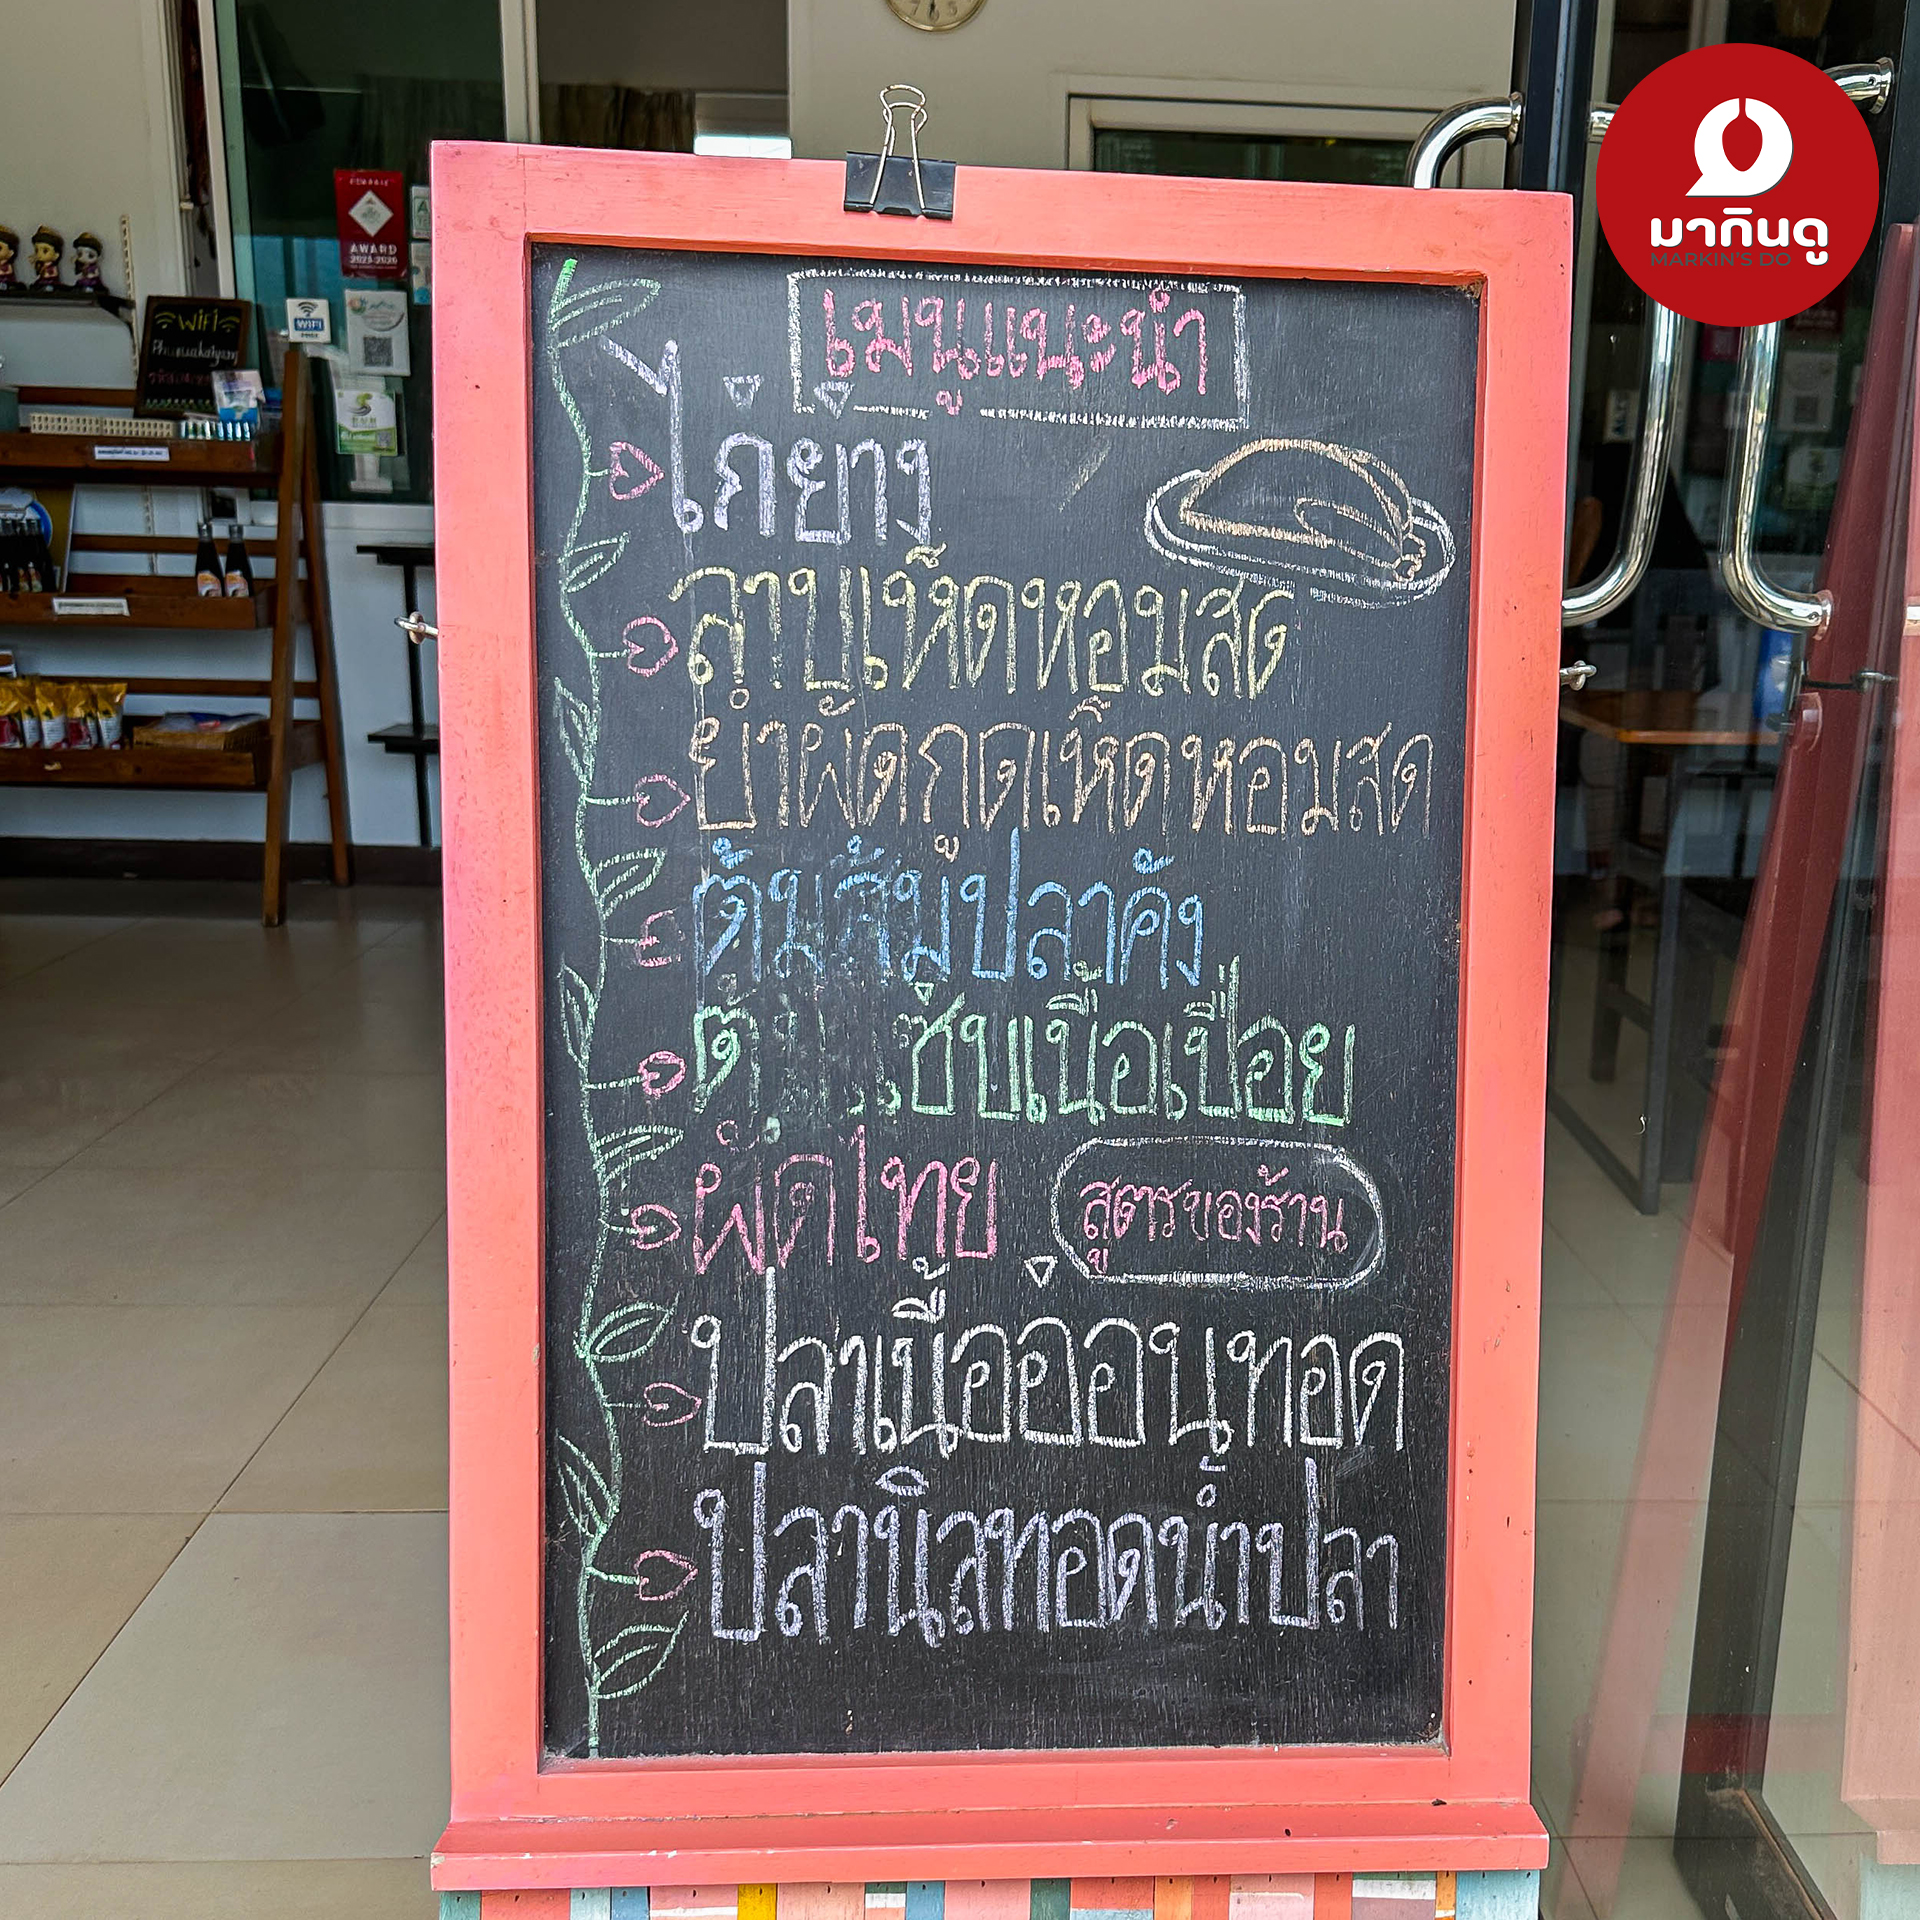 เมนูแนะนำ
ไก่ย่าง
ลาบเห็ดหอมสด
ยำผักกูดเห็ดหอมสด
ต้มส้มปลาคัง
ซุปเนื้อเปื่อย
ผัดไทย สูตรของร้าน
ปลาเนื้ออ่อนทอด
ปลานิลทอดน้ำปลา
มากินดู
MARKIN'S DO
WiFi
WiFi
AWARD
2025-2026